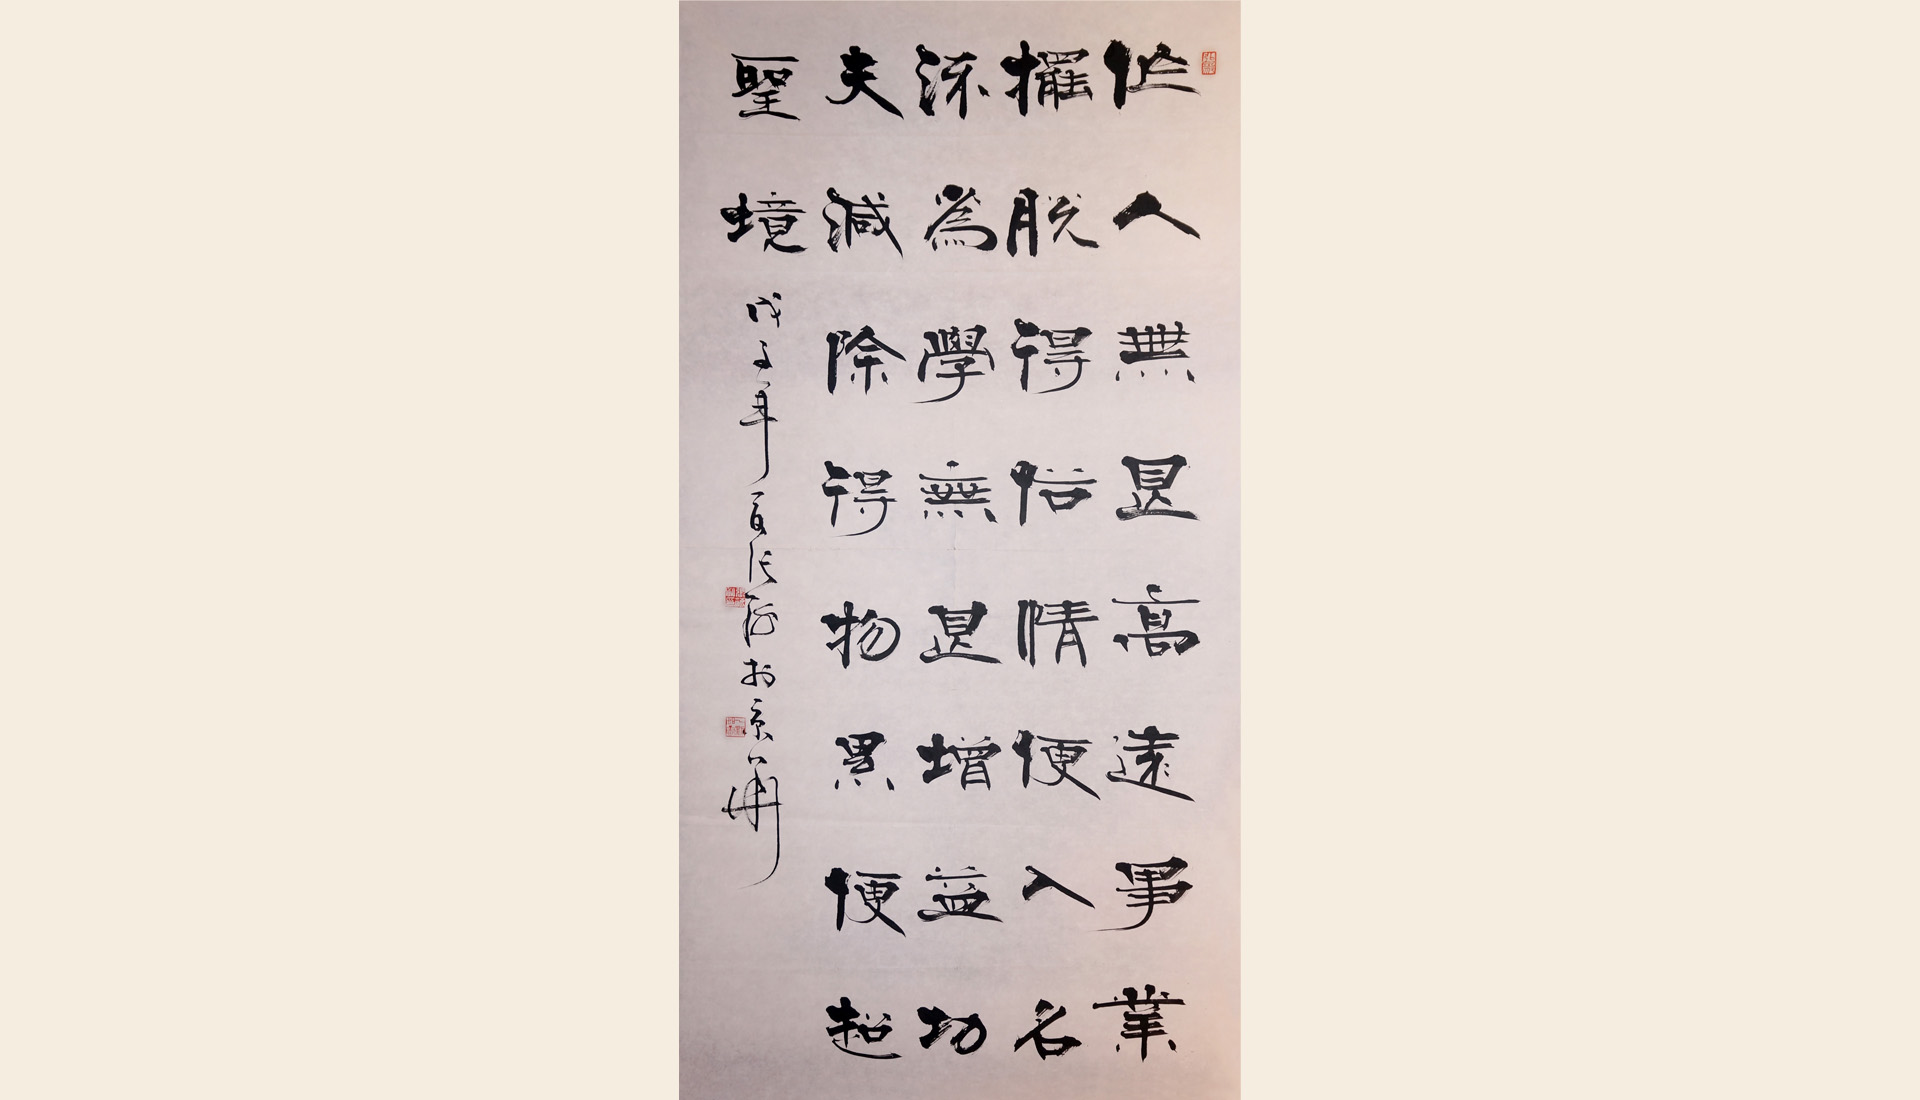 作人無甚高遠事業
擺脫得俗情便入名
流為學無甚增益功
夫減除得物累便超
聖境
戊子年夏張於京華